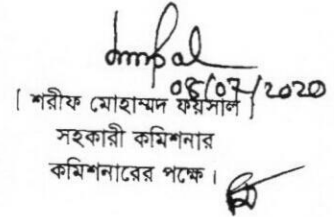 08/07/2020
[ শরীফ মোহাম্মদ ফয়সাল ]
সহকারী কমিশনার
কমিশনারের পক্ষে।